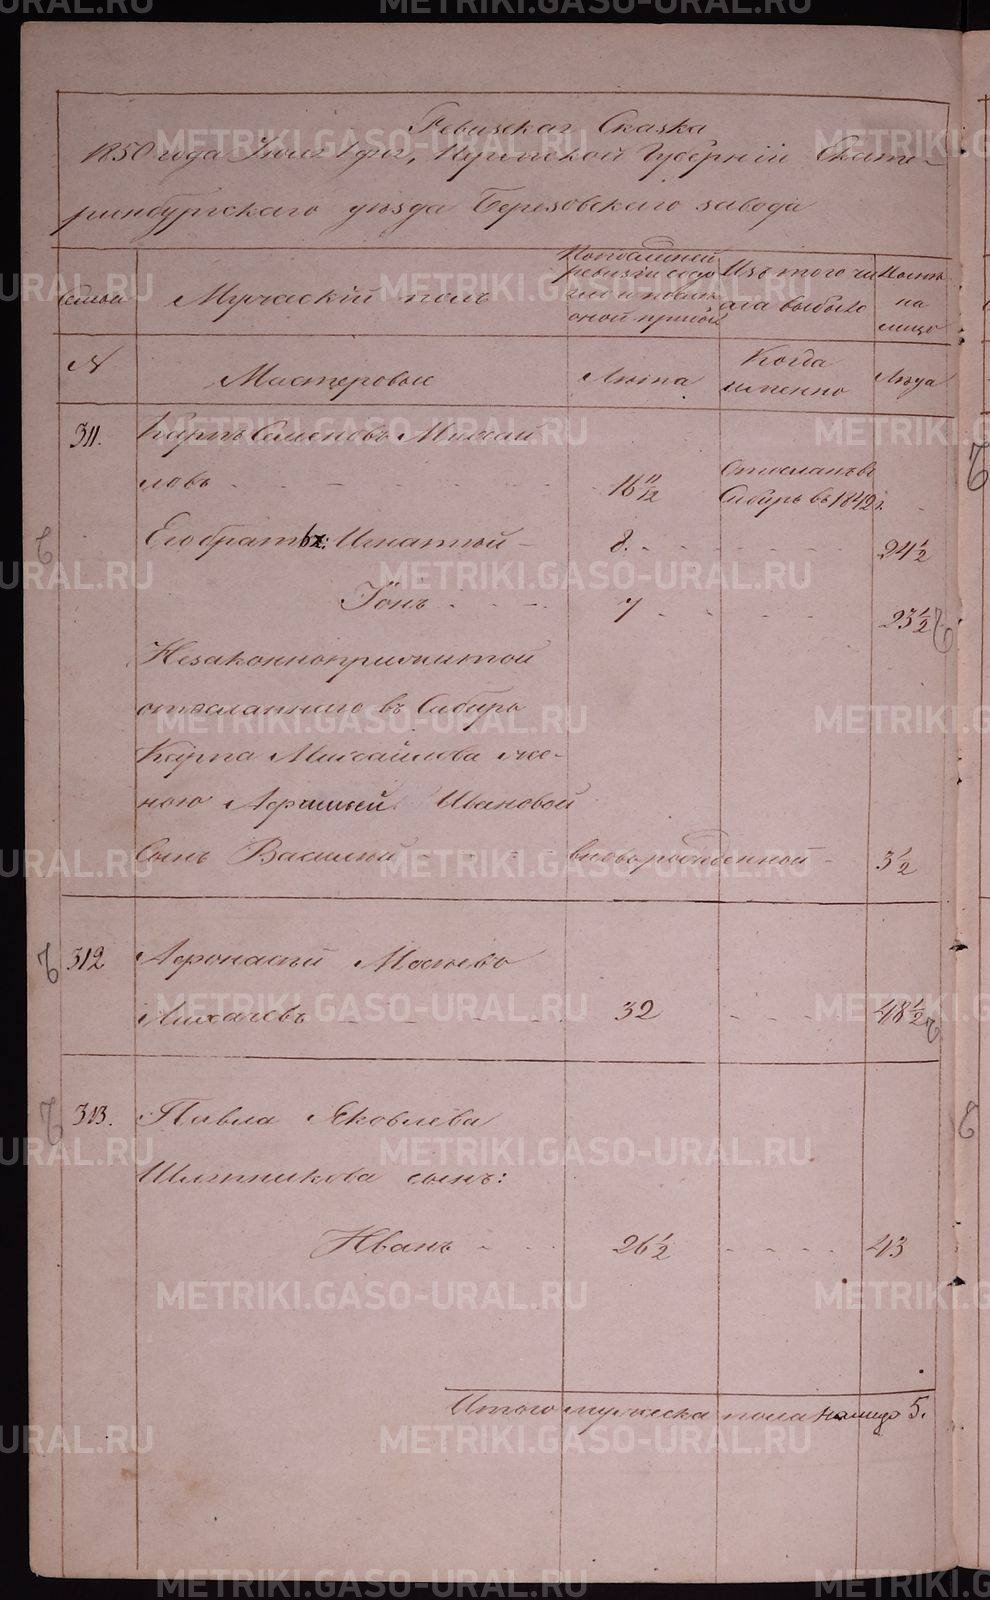 METRIKI.GASO-URAL.RU
Ревизская Сказка
1850 года Июля 1 дня, Пермской Губернiи Екате-
ринбургскаго уѣзда Березовскаго завода
Семьи
Мужескiй полъ
По последней ревизiи состо
Изъ того чи
сла выбыло
Нынѣ
на
лицо
N
Мастеровые
Лѣта
Когда
именно
Лѣта
311.
Карпъ Семеновъ Михай
ловъ - - - - - -
16 11/12
Отосланъ въ
Сибирь въ 1842 г.
Его братья: Игнатiй -
8. - - - - - -
24 1/2
Iонъ - - -
7 - - - -
23 1/2
Незаконноприжитой
отосланнаго въ Сибирь
Карпа Михайлова же-
ною Ивановой
Сынъ Василiй - - - -
вновь рожденной -
3 1/2
312
Афонасiй Мосѣевъ
Лихачевъ - - - - -
32 - - - -
48 1/2
313.
Павла Яковлева
Шляпникова сынъ:
Иванъ - - -
26 1/2 - - - -
43
Итого мужеска пола налицо 5.